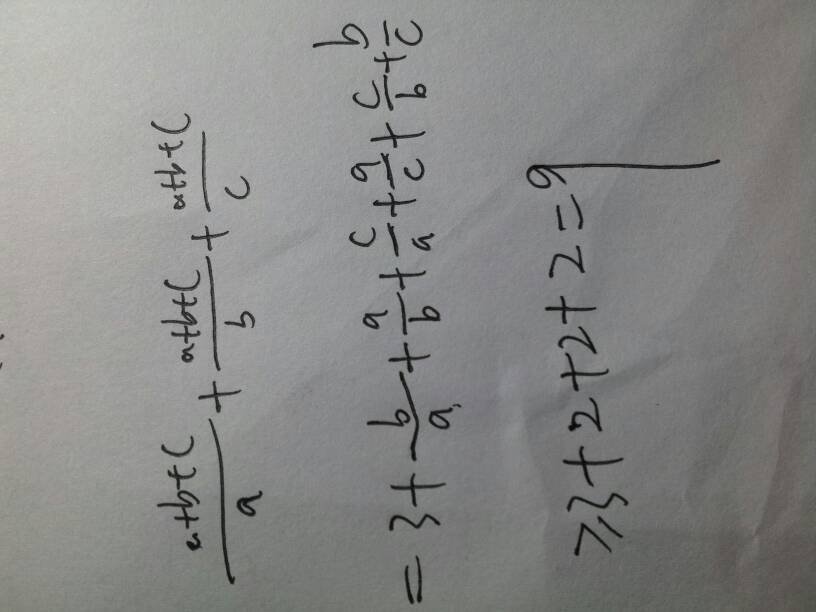 a+b+c/a + a+b+c/b + a+b+c/c
= 3 + b/a + a/b + c/a + a/c + c/b + b/c
≥ 3+2+2+2=9